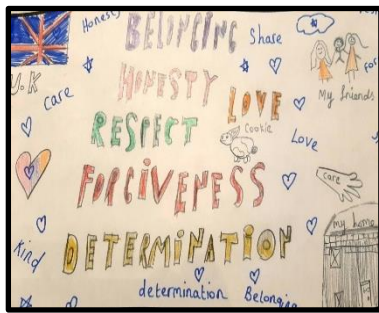 Honesty
BELONGING
Share
U.K
care
HONESTY
LOVE
My friends
RESPECT
Cookie
Love
FORGIVENESS
care
my home
kind
DETERMINATION
determination
Belonging